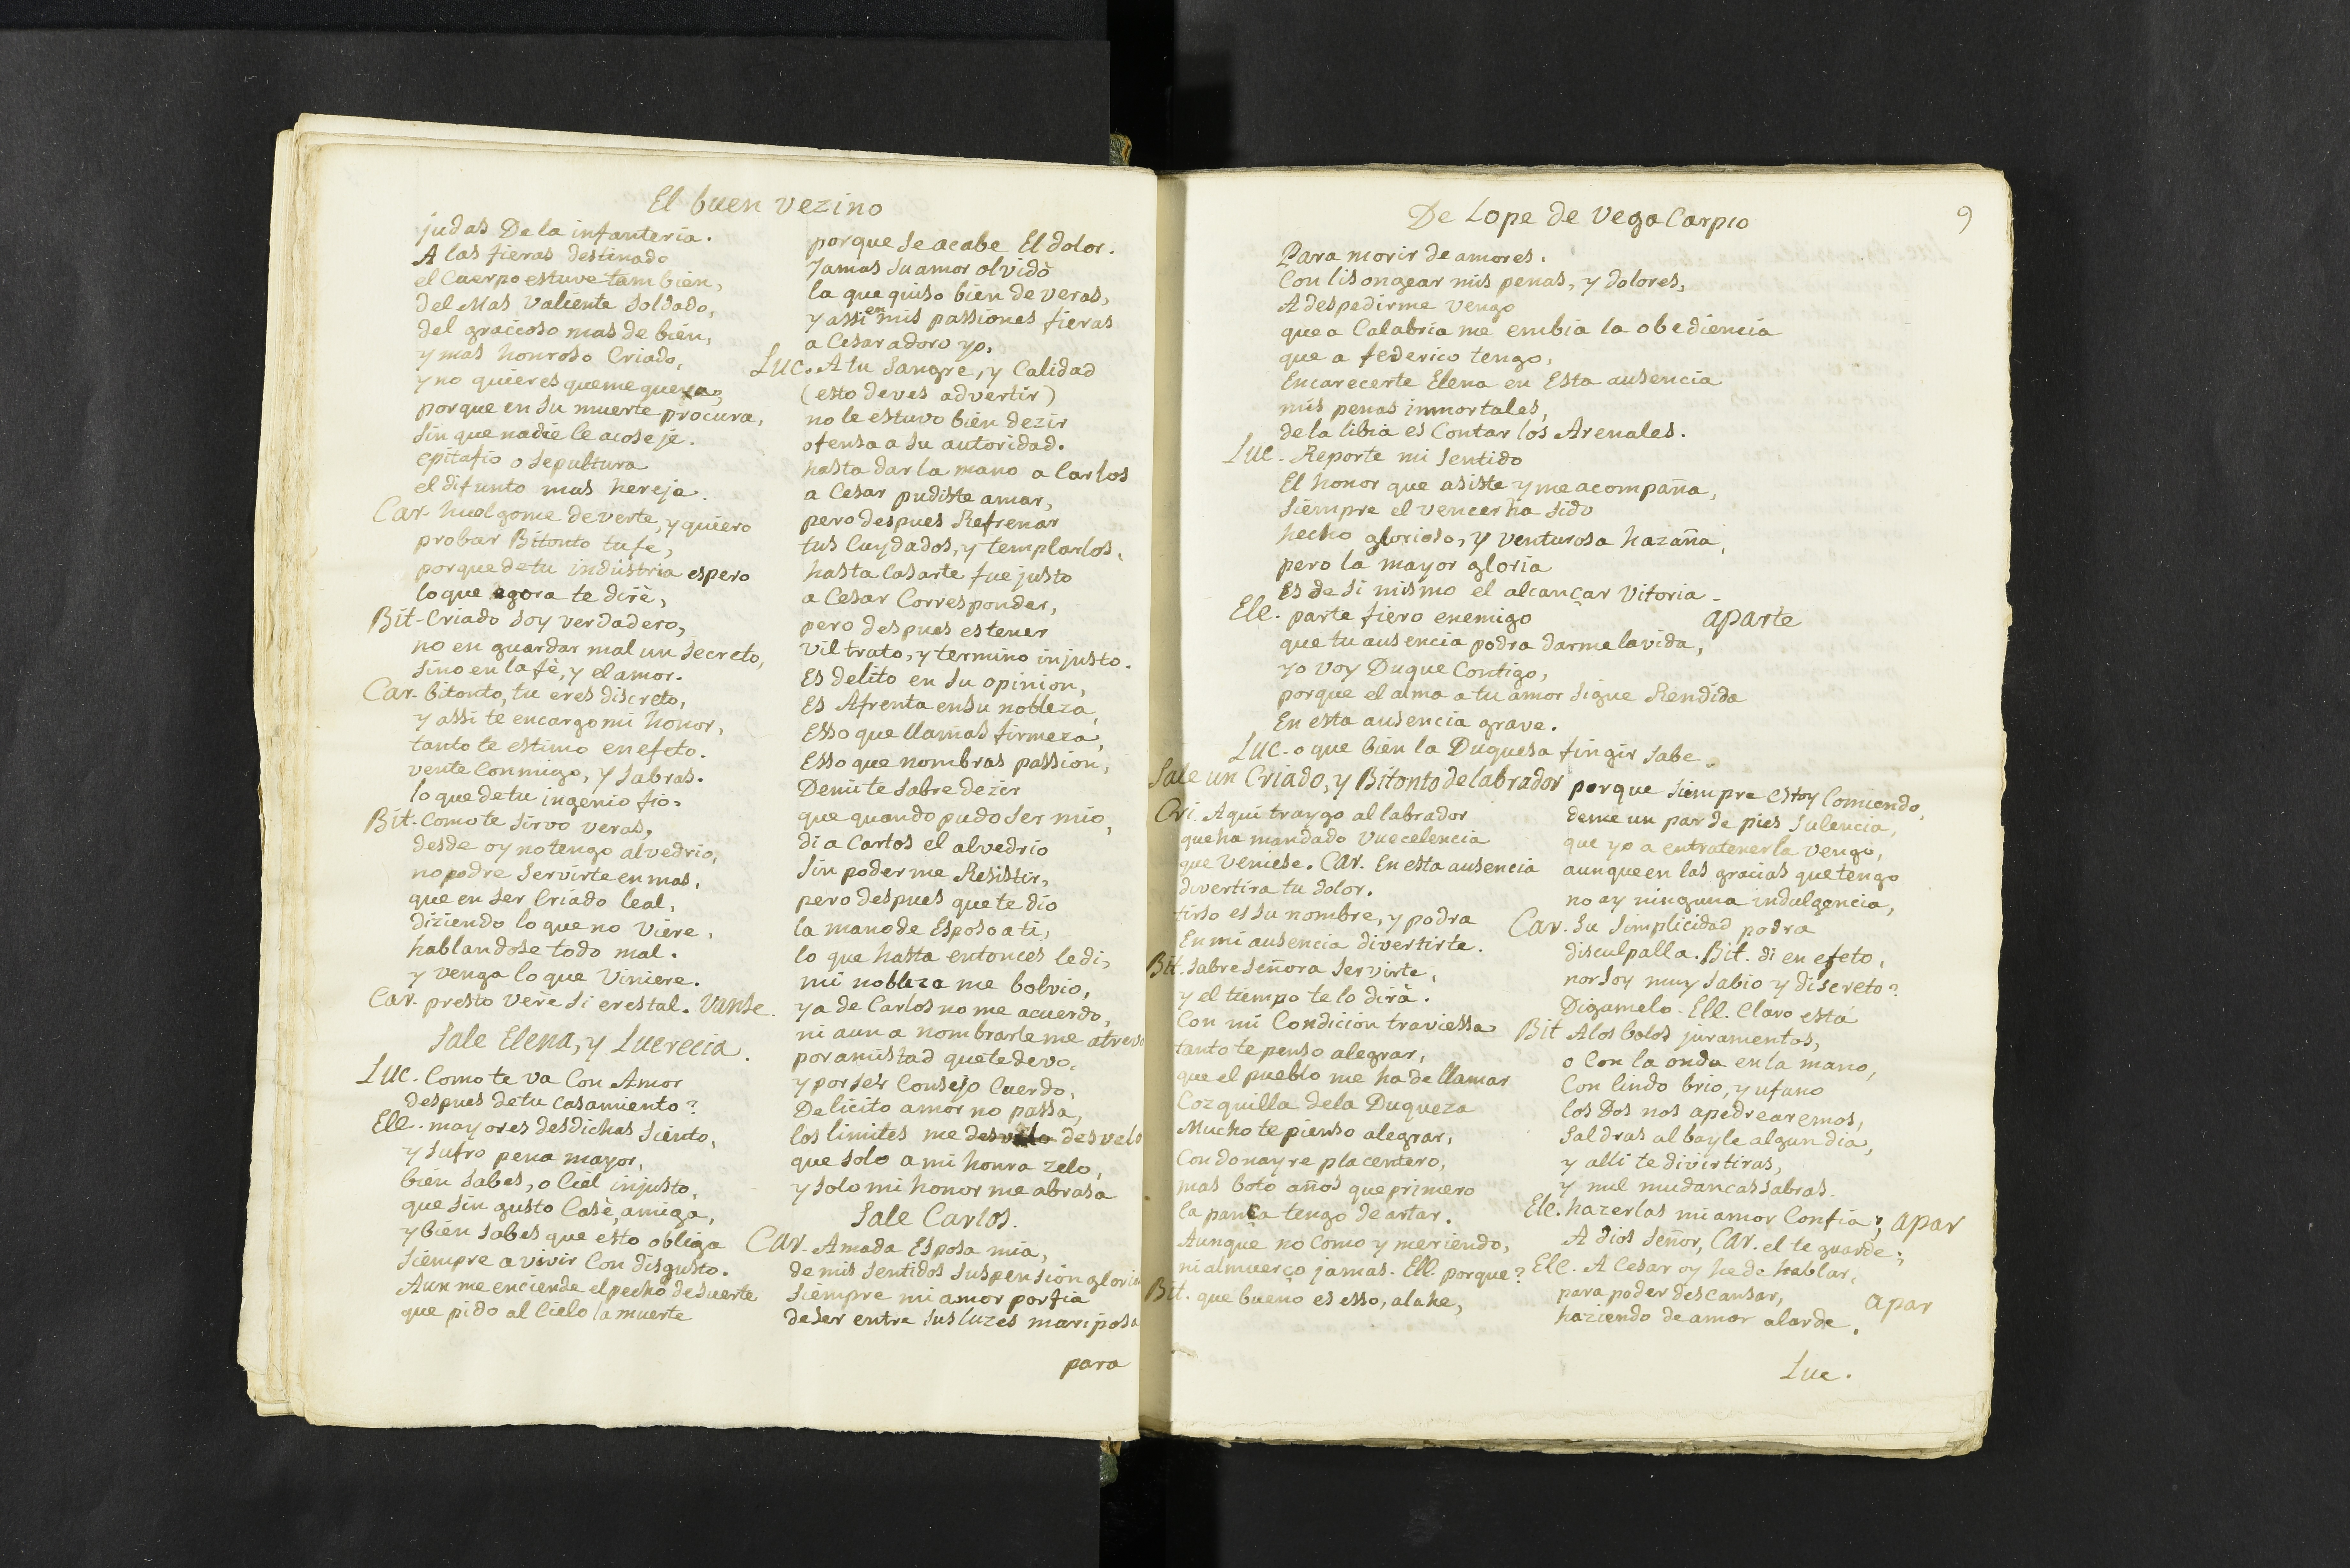 El buen vezino
judas De la infanteria.
A las fieras destinado
el Cuerpo estuve tambien,
del Mas valiente soldado,
del gracioso mas de bien,
y mas honroso Criado,
y no quieres que me quexe,
porque en su muerte procura,
sin que nadie le acoseje.
epitafio o sepultura
el difunto mas hereje.
Car. huelgome de verte, y quiero
probar Bitonto tu fe,
porque de tu industria espero
lo que agora te dirè,
Bit. Criado soy verdadero,
no en guardar mal un secreto,
sino en la fè, y el amor.
Car. bitonto, tu eres discreto,
y assi te encargo mi honor,
tanto te estimo en efeto.
vente Conmigo, y sabras.
lo que de tu ingenio fio.
Bit. Como te sirvo veras,
desde oy no tengo alvedrio,
no podre servirte en mas,
que en ser Criado leal,
diziendo lo que no viere,
hablandose todo mal.
y venga lo que viniere.
Car. presto verè si eres tal. Vanse.
Sale Elena, y Lucrecia.
Luc. Como te va Con Amor
despues de tu casamiento?
Ele. mayores desdichas siento,
y sufro pena mayor,
bien sabes, o Ciel injusto,
que sin gusto Casè, amiga,
y bien sabes que esto obliga
siempre a vivir Con disgusto.
Aun me enciende el pecho de suerte
que pido al Cielo la muerte
porque se acabe El dolor.
Jamas su amor olvidò
la que quiso bien de veras,
y assi en mis passiones fieras
a Cesar adoro yo.
Luc. A tu sangre, y Calidad
(esto deves advertir)
no le estuvo bien dezir
ofensa a su autoridad.
hasta dar la mano a Carlos
a Cesar pudiste amar,
pero despues Refrenar
tus Cuydados, y templarlos,
hasta Casarte fue justo
a Cesar Corresponder,
pero despues es tener
vil trato, y termino injusto.
Es delito en su opinion,
Es Afrenta en su nobleza,
Esso que llamas firmeza,
Esso que nombras passion,
De mi te sabre dezir
que quando pudo ser mio,
di a Carlos el alvedrio
sin poderme Resistir,
pero despues que te dio
la mano de Esposo a ti,
lo que hasta entonces le di,
mi nobleza me bolvio,
ya de Carlos no me acuerdo,
ni aun a nombrarle me atrevo
por amistad que te devo,
y por ser Consejo Cuerdo,
De licito amor no passa,
los limites me desvelo desvelo
que solo a mi honra zelo,
y solo mi honor me abrasa
Sale Carlos.
Car. Amada Esposa mia,
de mis sentidos suspension gloriosa
siempre mi amor porfia
de ser entre sus luzes mariposa
para
De Lope de Vega Carpio
9
Para morir de amores.
Con lisongear mis penas, y dolores,
A despedirme vengo
que a Calabria me embia la obediencia
que a federico tengo,
Encarecerte Elena en Esta ausencia
mis penas inmortales,
de la libia es Contar los Arenales.
Luc. Reporte mi sentido
El honor que asiste y me acompaña,
siempre el vencer ha sido
hecho glorioso, y venturosa hazaña,
pero la mayor gloria
Es de si mismo el alcançar Vitoria.
Ele. parte fiero enemigo aparte
que tu ausencia podra darme la vida,
yo voy Duque Contigo,
porque el alma a tu amor sigue Rendida
En esta ausencia grave.
Luc. o que bien la Duquesa fingir sabe.
Sale un Criado, y Bitonto de labrador
Cri. Aqui traygo al labrador
que ha mandado Vuecelencia
que veniese. Car. En esta ausencia
divertira tu dolor.
tirso es su nombre, y podra
En mi ausencia divertirte.
Bit. sabre señora servirte,
y el tiempo te lo dirà.
Con mi Condicion traviessa
tanto te penso alegrar,
que el pueblo me ha de llamar
Cozquilla de la Duqueza
Mucho te pienso alegrar,
Con donayre placentero,
mas botò años que primero
la pança tengo de artar.
Aunque no como y meriendo,
ni almuerço jamas. Ell. porque?
Bit. que bueno es esso, alahe,
porque siempre estoy Comiendo,
deme un par de pies sulencia,
que yo a entratenerla vengo,
aunque en las gracias que tengo
no ay ninguna indulgencia,
Car. su simplicidad podra
disculpalla. Bit. di en efeto,
nor soy muy sabio y discreto?
Digamelo. Ell. Claro està
Bit A los bolos juramentos,
o Con la onda en la mano,
Con lindo brio, y ufano
los Dos nos apedrearemos,
saldras al bayle algun dia,
y alli te divirtiras,
y mil mudancas sabras.
Ele. hazerlas mi amor Confia; apar
A dios señor, Car. el te guarde;
Ele. A Cesar oy he de hablar,
para poder descansar, apar
haziendo de amor alarde.
Luc.